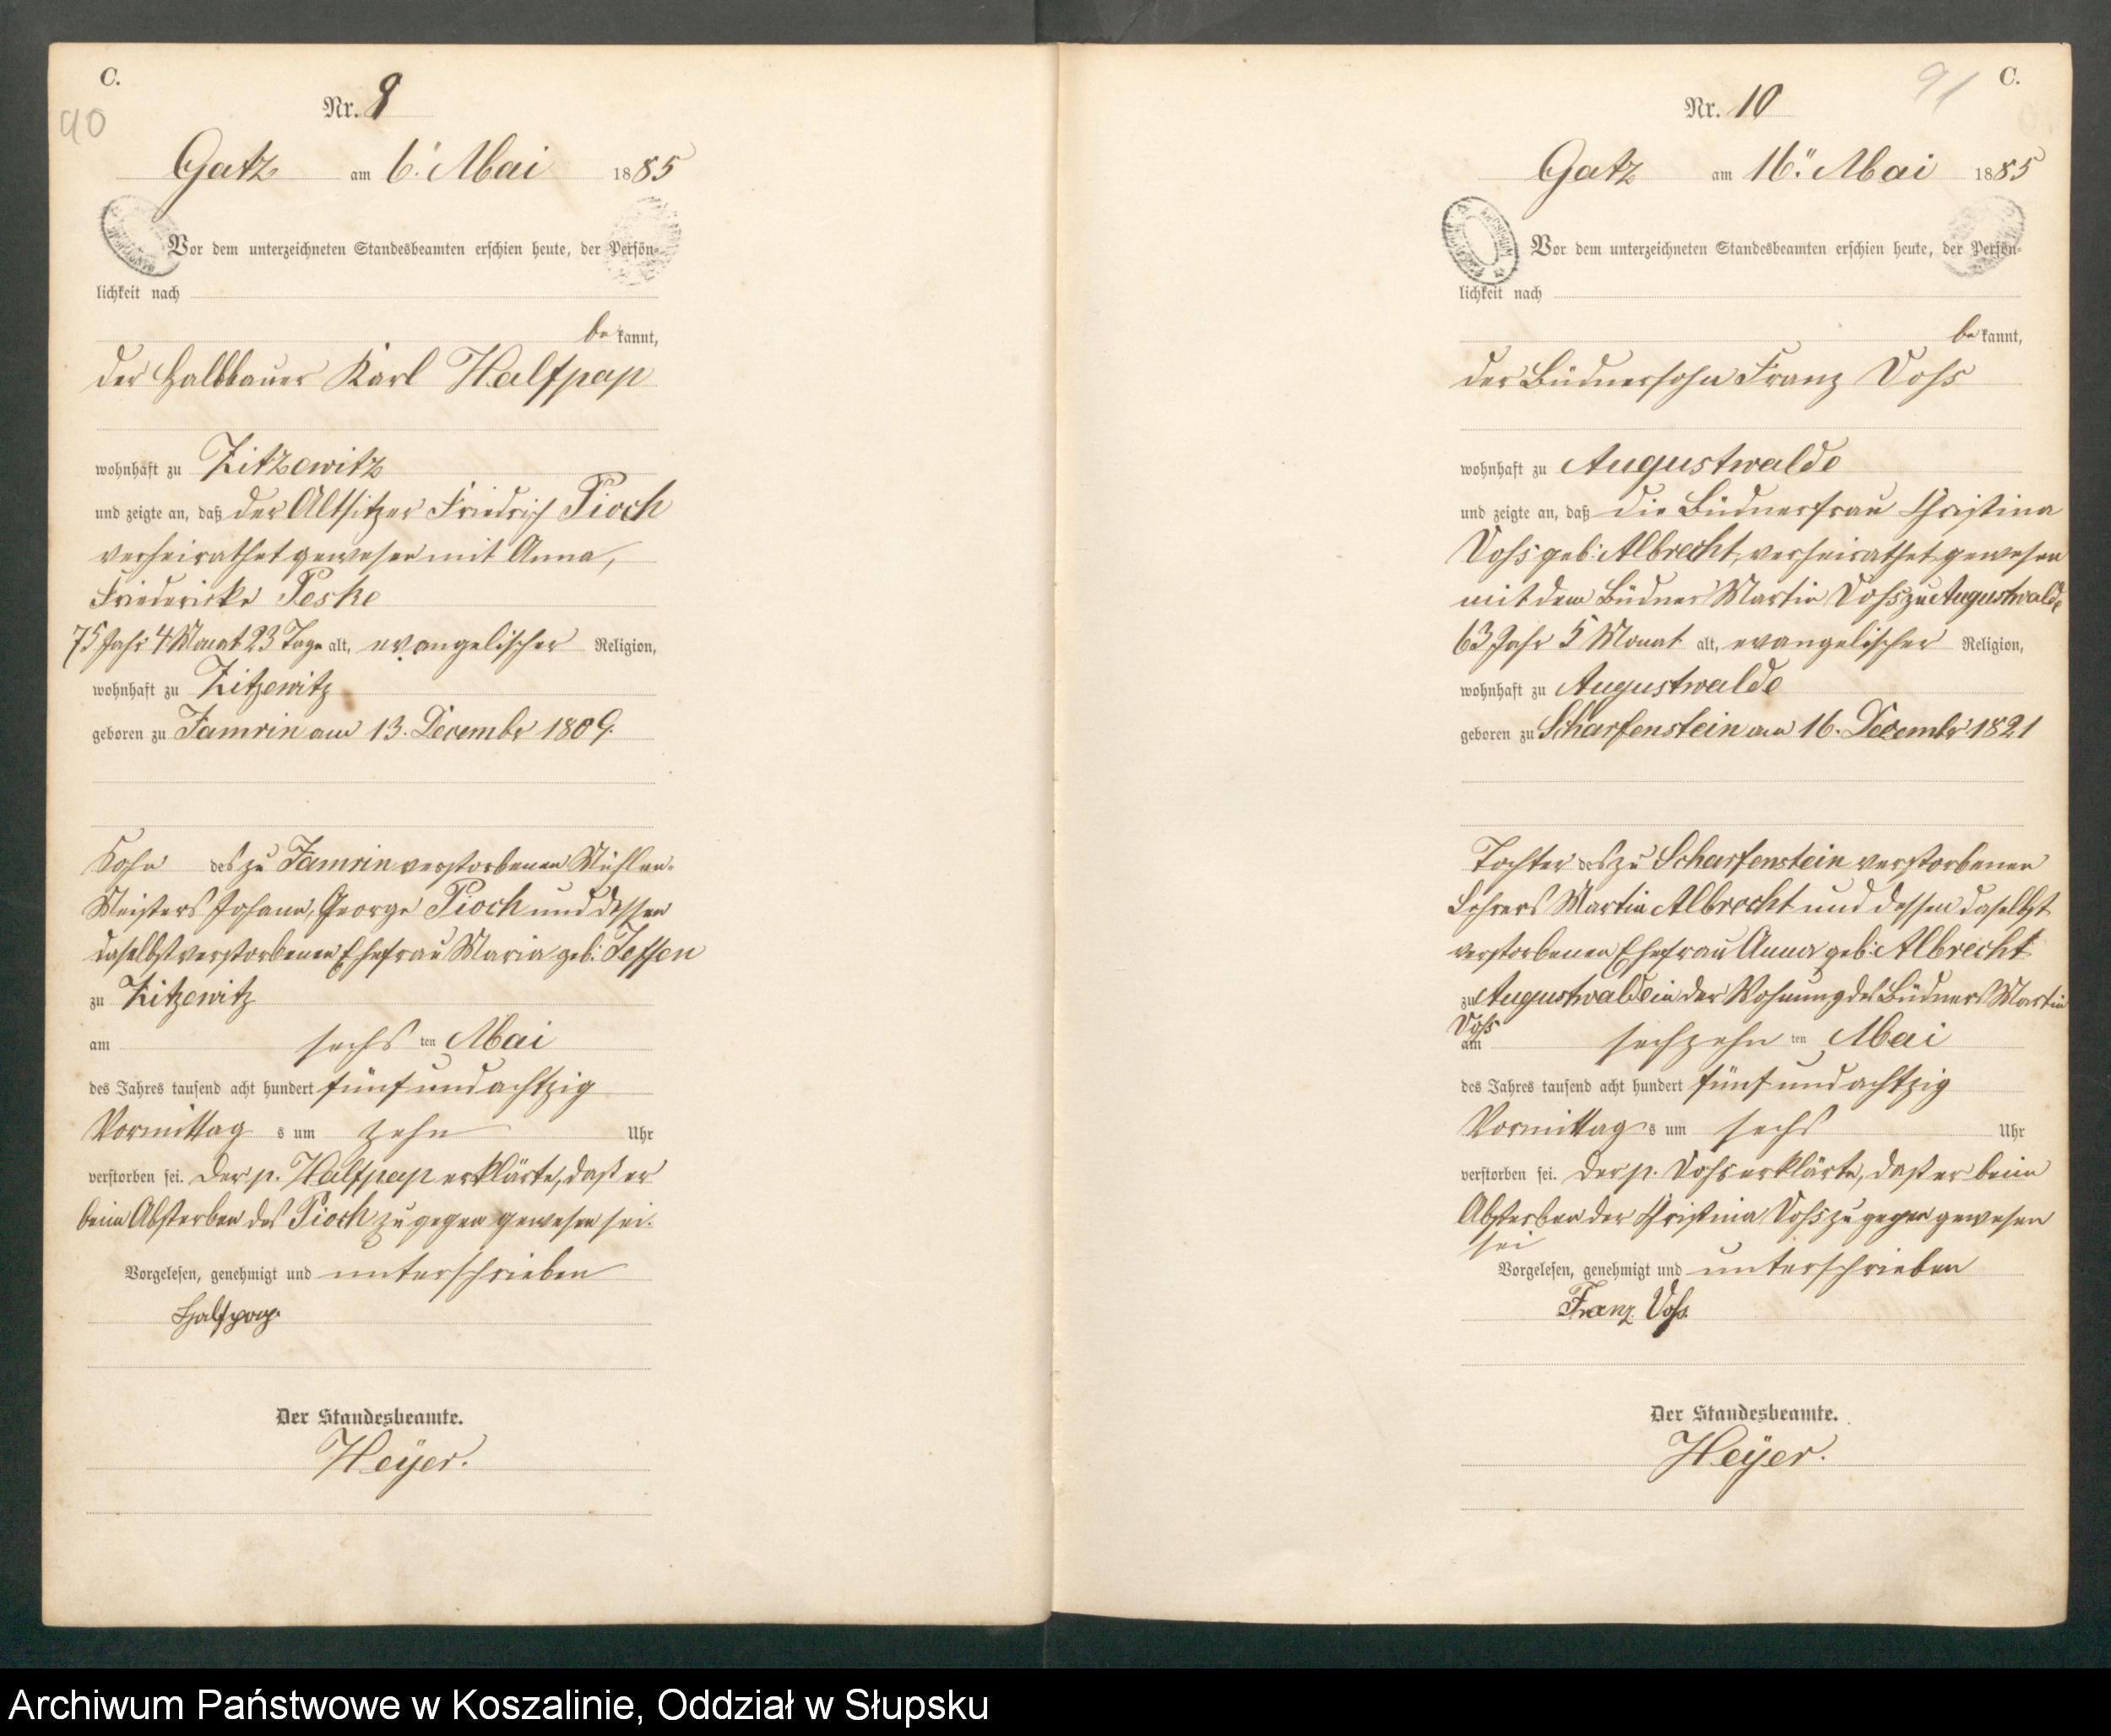 C.
90
Nr. 9
Gatz am 6. Mai 1885
Vor dem unterzeichneten Standesbeamten erschien heute, der Persön-
lichkeit nach
be kannt,
der Halbbauer Karl Halfpap
wohnhaft zu Zitzewitz
und zeigte an, daß der Altsitzer Friedrich Pioch
verheirathet gewesen mit Anna,
Friedericke Peske
75 Jahr 4 Monat 23 Tage alt, evangelischer Religion,
wohnhaft zu Zitzewitz
geboren zu Jamrin am 13. Decembr 1809.
Sohn des zu Jamrin verstorbenen Mühlen-
Meisters Johann, George Pioch und dessen
daselbst verstorbenen Ehefrau Maria geb. Jessen
zu Zitzewitz
am sechs ten Mai
des Jahres tausend acht hundert fünf und achtzig
Vormittag s um zehn Uhr
verstorben sei. Der p. Halfpap erklärte, daß er
beim Absterben des Pioch zugegen gewesen sei.
Vorgelesen, genehmigt und unterschrieben
Halfpap.
Der Standesbeamte.
Heÿer.
91
C.
Nr. 10
Gatz am 16. Mai 1885
Vor dem unterzeichneten Standesbeamten erschien heute, der Persön-
lichkeit nach
be kannt,
der Büdnersohn Franz Voss
wohnhaft zu Augustwalde
und zeigte an, daß die Büdnerfrau Christina
Voss geb. Albrecht, verheirathet gewesen
mit dem Büdner Martin Voss zu Augustwalde
63 Jahr 5 Monat alt, evangelischer Religion,
wohnhaft zu Augustwalde
geboren zu Scharfenstein am 16. Decembr 1821
Tochter des zu Scharfenstein verstorbenen
Lehrers Martin Albrecht und dessen daselbst
verstorbenen Ehefrau Anna geb. Albrecht
zu Augustwalde in der Wohnung des Büdners Martin
Voss
am sechzehn ten Mai
des Jahres tausend acht hundert fünf und achtzig
Vormittag s um sechs Uhr
verstorben sei. Der p. Voss erklärte, daß er beim
Absterben der Christina Voss zugegen gewesen
sei
Vorgelesen, genehmigt und unterschrieben
Franz Voss.
Der Standesbeamte.
Heÿer.
Archiwum Państwowe w Koszalinie, Oddział w Słupsku